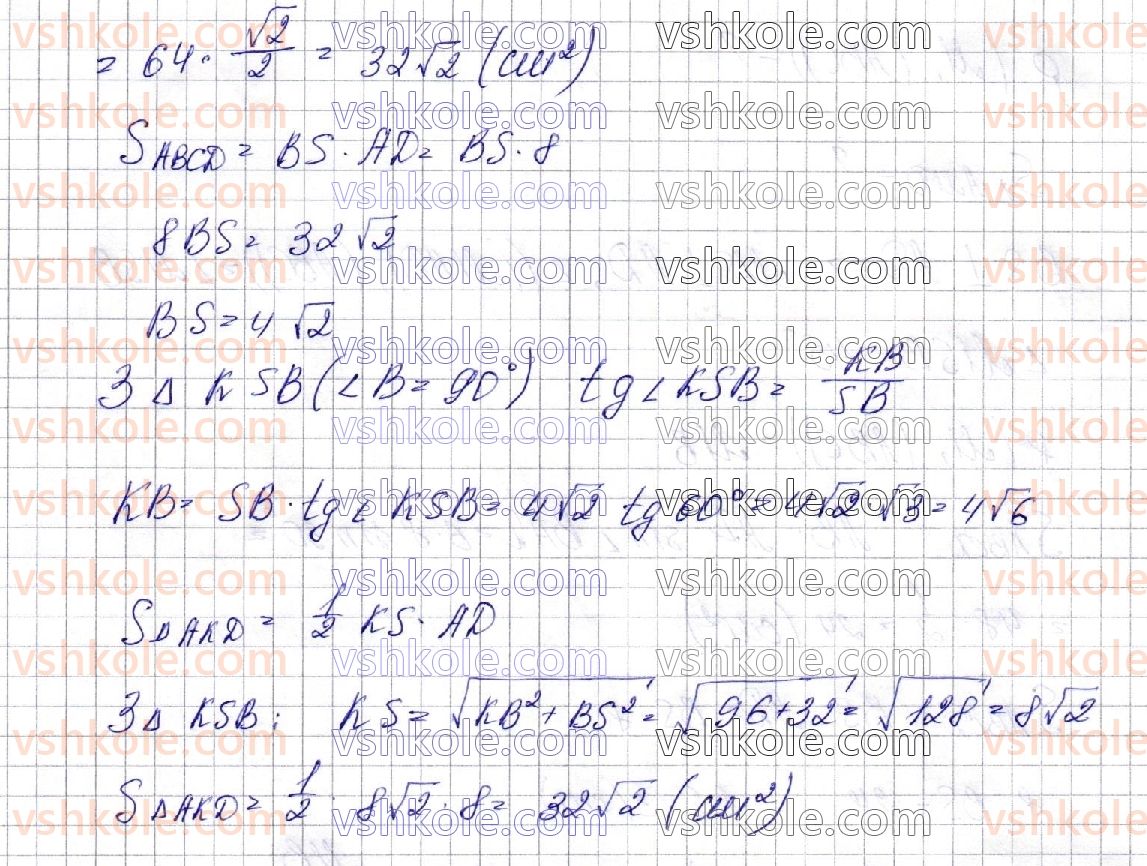 = 64 · √2/2 = 32√2 (см²)
S ABCD = BS · AD = BS · 8
8BS = 32√2
BS = 4√2
З Δ KSB (∠B = 90°) tg∠KSB = KB/SB
KB = SB · tg∠KSB = 4√2 tg 60° = 4√2 √3 = 4√6
S ΔAKD = 1/2 KS · AD
З Δ KSB: KS = √(KB² + BS²) = √(96+32) = √128 = 8√2
S ΔAKD = 1/2 · 8√2 · 8 = 32√2 (см²)
vshkole.com